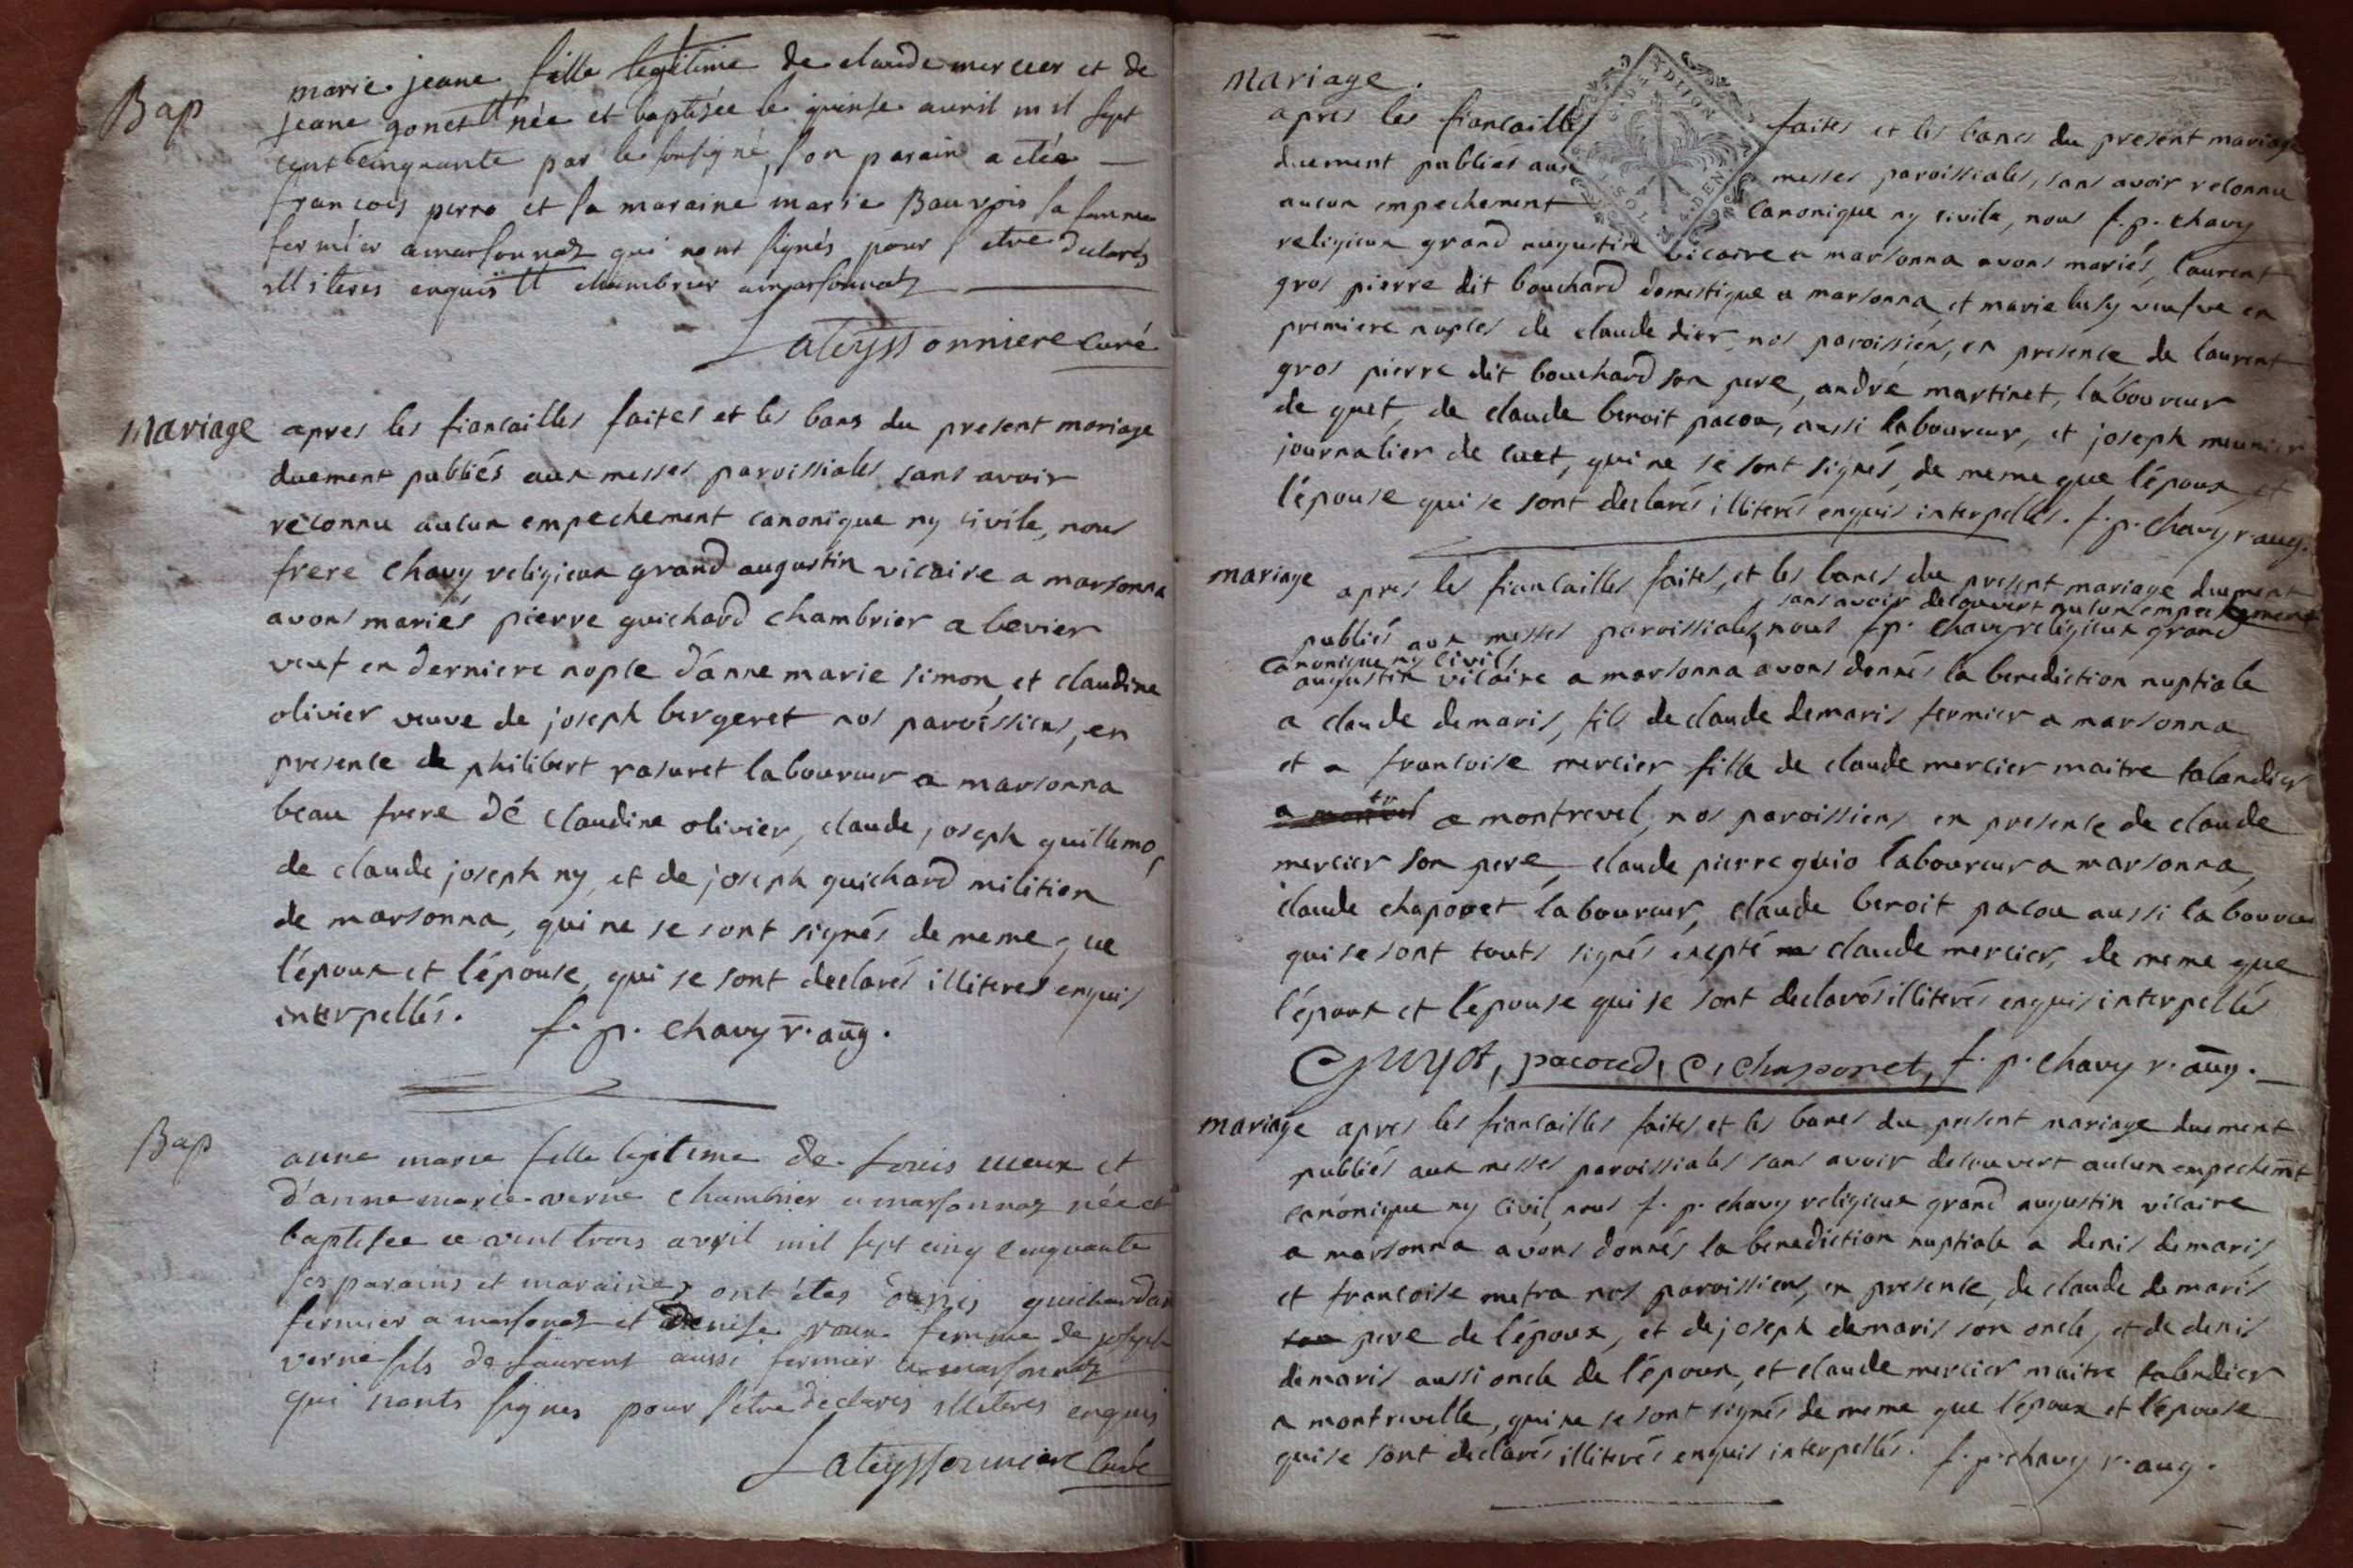 Bap
marie jeane fille legitime de claude mercier et de
jeane gonet née et baptisée le quinse auril mil sept
cent cinquante par le sousigné, son parain a etée
francois perro et sa maraine marie Bauvois sa femme
fermier amarsonnaz qui nont signés pour s'etre declarés
illiteres enquis chambrier amarsonnaz
Lateyssonniere curé
Mariage
apres les fiancailles faites et les bans du present mariage
duement publiés aux messes paroissiales sans avoir
reconnu aucun empechement canonique ny civile, nous
frere chavy religieux grand augustin vicaire a marsonna
avons mariés pierre guichard chambrier a bevier
veuf en derniere nople d'anne marie simon, et claudine
olivier veuve de joseph bergeret nos paroissiens, en
presence de philibert rasuret laboureur a marsonna
beau frere dé claudine olivier, claude joseph guillemo,
de claude joseph ny, et de joseph guichard milition
de marsonna, qui ne se sont signés de meme que
l'époux et l'épouse, qui se sont declarés illiteres enquis
interpellés. f. p. chavy r. aug.
Bap
anne marie fille legitime de Louis
d'anne marie verne chambrier a marsonnaz née et
baptisée ce vint trois avril mil sept cinq cinquante
ses parains et maraines ont étes guichardan
fermier a marsonaz et denise roux femme de joseph
verne fils de Laurent aussi fermier a marsonnaz
qui nonts signes pour s'etre declarés illiteres enquis
Lateyssonniere curé
mariage.
apres les fiancailles faites et les bancs du present mariage
duement publiés aux messes paroissiales, sans avoir reconnu
aucun empechement canonique ny civile, nous f. p. chavy
religieux grand augustin vicaire a marsonna avons mariés, laurent
gros pierre dit bouchard domestique a marsonna, et marie lusy veufve en
premiere noples de claude dier, nos paroissiens, en presence de laurent
gros pierre dit bouchard son pere, andré martinet, laboureur
de quet, de claude benoit pacou, aussi laboureur, et joseph meunier
journalier de cuet, qui ne se sont signés, de meme que l'époux et
l'épouse qui se sont declarés illiterés enquis interpellés. f. p. chavy r. aug.
DIJON
SOL 4 DEN
mariage
apres les fiancailles faites, et les bancs du present mariage duement
sans avoir decouvert aucun empechement
publiés aux messes paroissiales, nous f. p. chavy religieux grand
canonique ny civils
augustin vicaire a marsonna avons donnés la benediction nuptiale
a claude demaris, fils de claude demaris fermier a marsonna
et a francoise mercier fille de claude mercier maitre talandier
a montrevel, nos paroissiens en presence de claude
mercier son pere, claude pierre guio laboureur a marsonna,
claude chaponet laboureur, claude benoit pacou aussi laboureur
qui se sont touts signés exepté claude mercier, de meme que
l'époux et l'épouse qui se sont declarés illiterés enquis interpellés
Guyot, pacoud, C, chaponet, f. p. chavy r. aug.
mariage
apres les fiancailles faites et les bancs du present mariage duement
publiés aux messes paroissiales sans avoir decouvert aucun empechemt
canonique ny civil, nous f. p. chavy religieux grand augustin vicaire
a marsonna avons donnés la benediction nuptiale a denis demaris,
et francoise metra nos paroissiens, en presence, de claude demaris
pere de l'époux, et de joseph demaris son oncle, et de denis
demaris aussi oncle de l'époux, et claude mercier maitre talandier
a montrevelle, qui ne se sont signés de meme que l'époux et l'épouse
qui se sont declarés illiterés enquis interpellés. f. p. chavy r. aug.